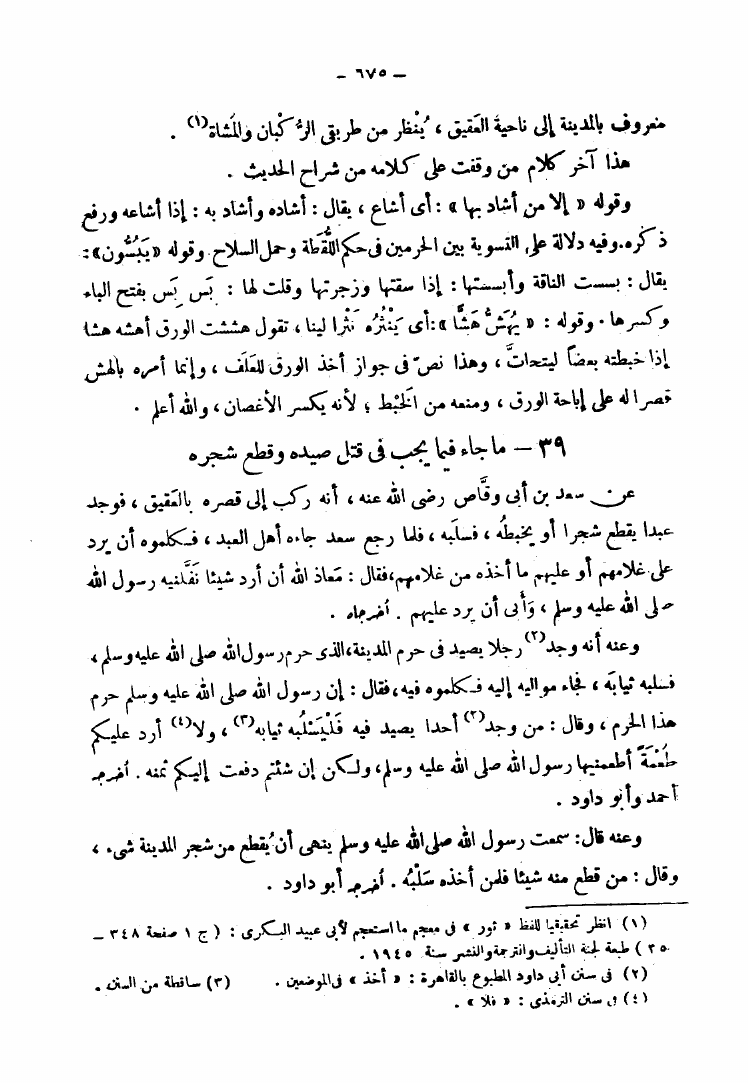 — ٦٧٥ —
معروف بالمدينة إلى ناحية العَقيق ، يُنْظر من طريقى الرُّكْبان والمَشاة(١) .
هذا آخر كلام من وقفت على كلامه من شراح الحديث .
وقوله « إلا من أشاد بها » : أى أشاع ، يقال : أشاده وأشاد به : إذا أشاعه ورفع
ذكره. وفيه دلالة على التسوية بين الحرمين فى حكم اللُّقَطة وحمل السلاح. وقوله «يَبُسُّون»:
يقال : بسست الناقة وأبسستها : إذا سقتها وزجرتها وقلت لها : بَس بِس بفتح الباء
وكسرها . وقوله : « يُهَشُّ هَشًّا »: أى يَنْثُرُه نَثْرا لينا ، تقول هششت الورق أهشه هشا
إذا خبطته بعضاً ليتحاتَّ ، وهذا نصّ فى جواز أخذ الورق للعَلَف ، وإنما أمره بالهش
قصرا له على إباحة الورق ، ومنعه من الخَبْط ؛ لأنه يكسر الأغصان ، والله أعلم .
٣٩ – ما جاء فيما يجب فى قتل صيده وقطع شجره
عن سعد بن أبى وقَّاص رضى الله عنه ، أنه ركب إلى قصره بالعَقيق ، فوجد
عبدا يقطع شجرا أو يخبطُه ، فسلَبه ، فلما رجع سعد جاءه أهل العبد ، فكلموه أن يرد
على غلامهم أو عليهم ما أخذه من غلامهم، فقال : مَعاذ الله أن أرد شيئا نَفَّلنيه رسول الله
صلى الله عليه وسلم ، وَأَبى أن يرد عليهم . أخرجاه .
وعنه أنه وجد(٢) رجلا يصيد فى حرم المدينة، الذى حرم رسول الله صلى الله عليه وسلم ،
فسلبه ثيابَه ، فجاء مواليه إليه فكلموه فيه، فقال : إن رسول الله صلى الله عليه وسلم حرم
هذا الحرم ، وقال : من وجد(٢) أحدا يصيد فيه فَلْيَسْلُبه ثيابه(٣) ، ولا(٤) أرد عليكم
طُعْمَةً أطعمنيها رسول الله صلى الله عليه وسلم، ولكن إن شئتم دفعت إليكم ثمنه . أخرجه
أحمد وأبو داود .
وعنه قال : سمعت رسول الله صلى الله عليه وسلم ينهى أن يُقطع من شجر المدينة شىء ،
وقال : من قطع منه شيئا فلمن أخذه سَلْبُه . أخرجه أبو داود .
(١) انظر تحقيقيا للفظ « ثور » فى معجم ما استعجم لأبى عبيد البكرى : ( ج ١ صفحة ٣٤٨ –
٣٥٠ ) طبعة لجنة التأليف والترجمة والنشر سنة ١٩٤٥ .
(٢) فى سنن أبى داود المطبوع بالقاهرة : « أخذ » فى الموضعين . (٣) ساقطة من السنن .
(٤) فى سنن الترمذى : « فلا » .